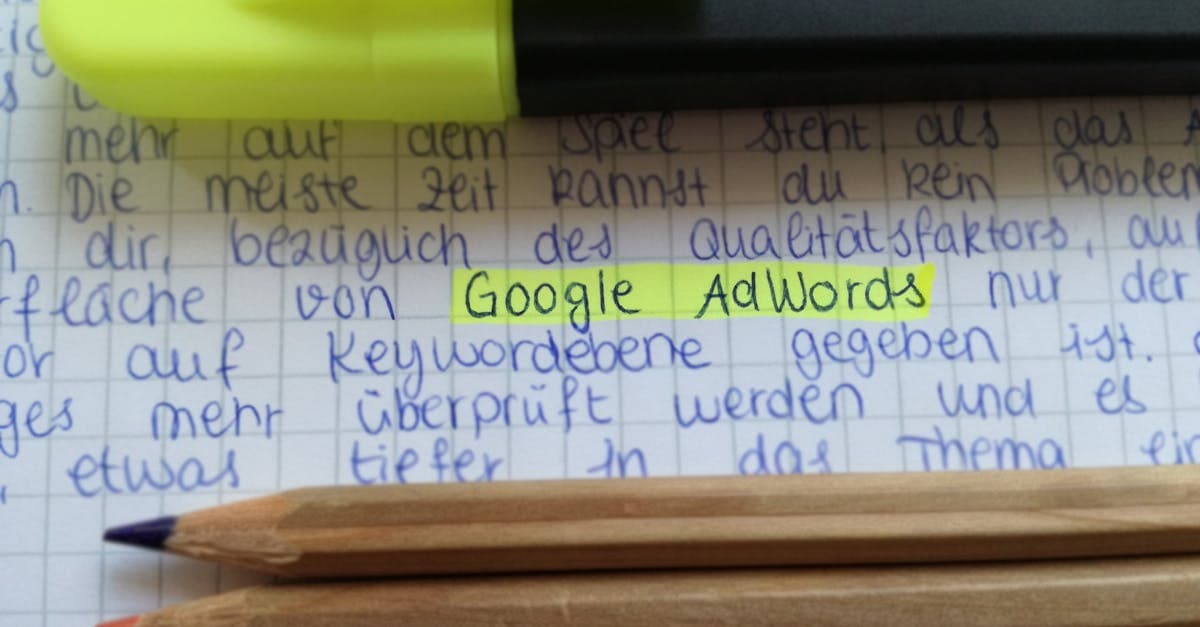 mehr auf dem Spiel steht, als das
Die meiste Zeit kannst du kein
dir, bezüglich des Qualitätsfaktors, au
fläche von Google AdWords nur der
or auf Keywordebene gegeben ist.
ges mehr überprüft werden und es
etwas tiefer in das Thema ein